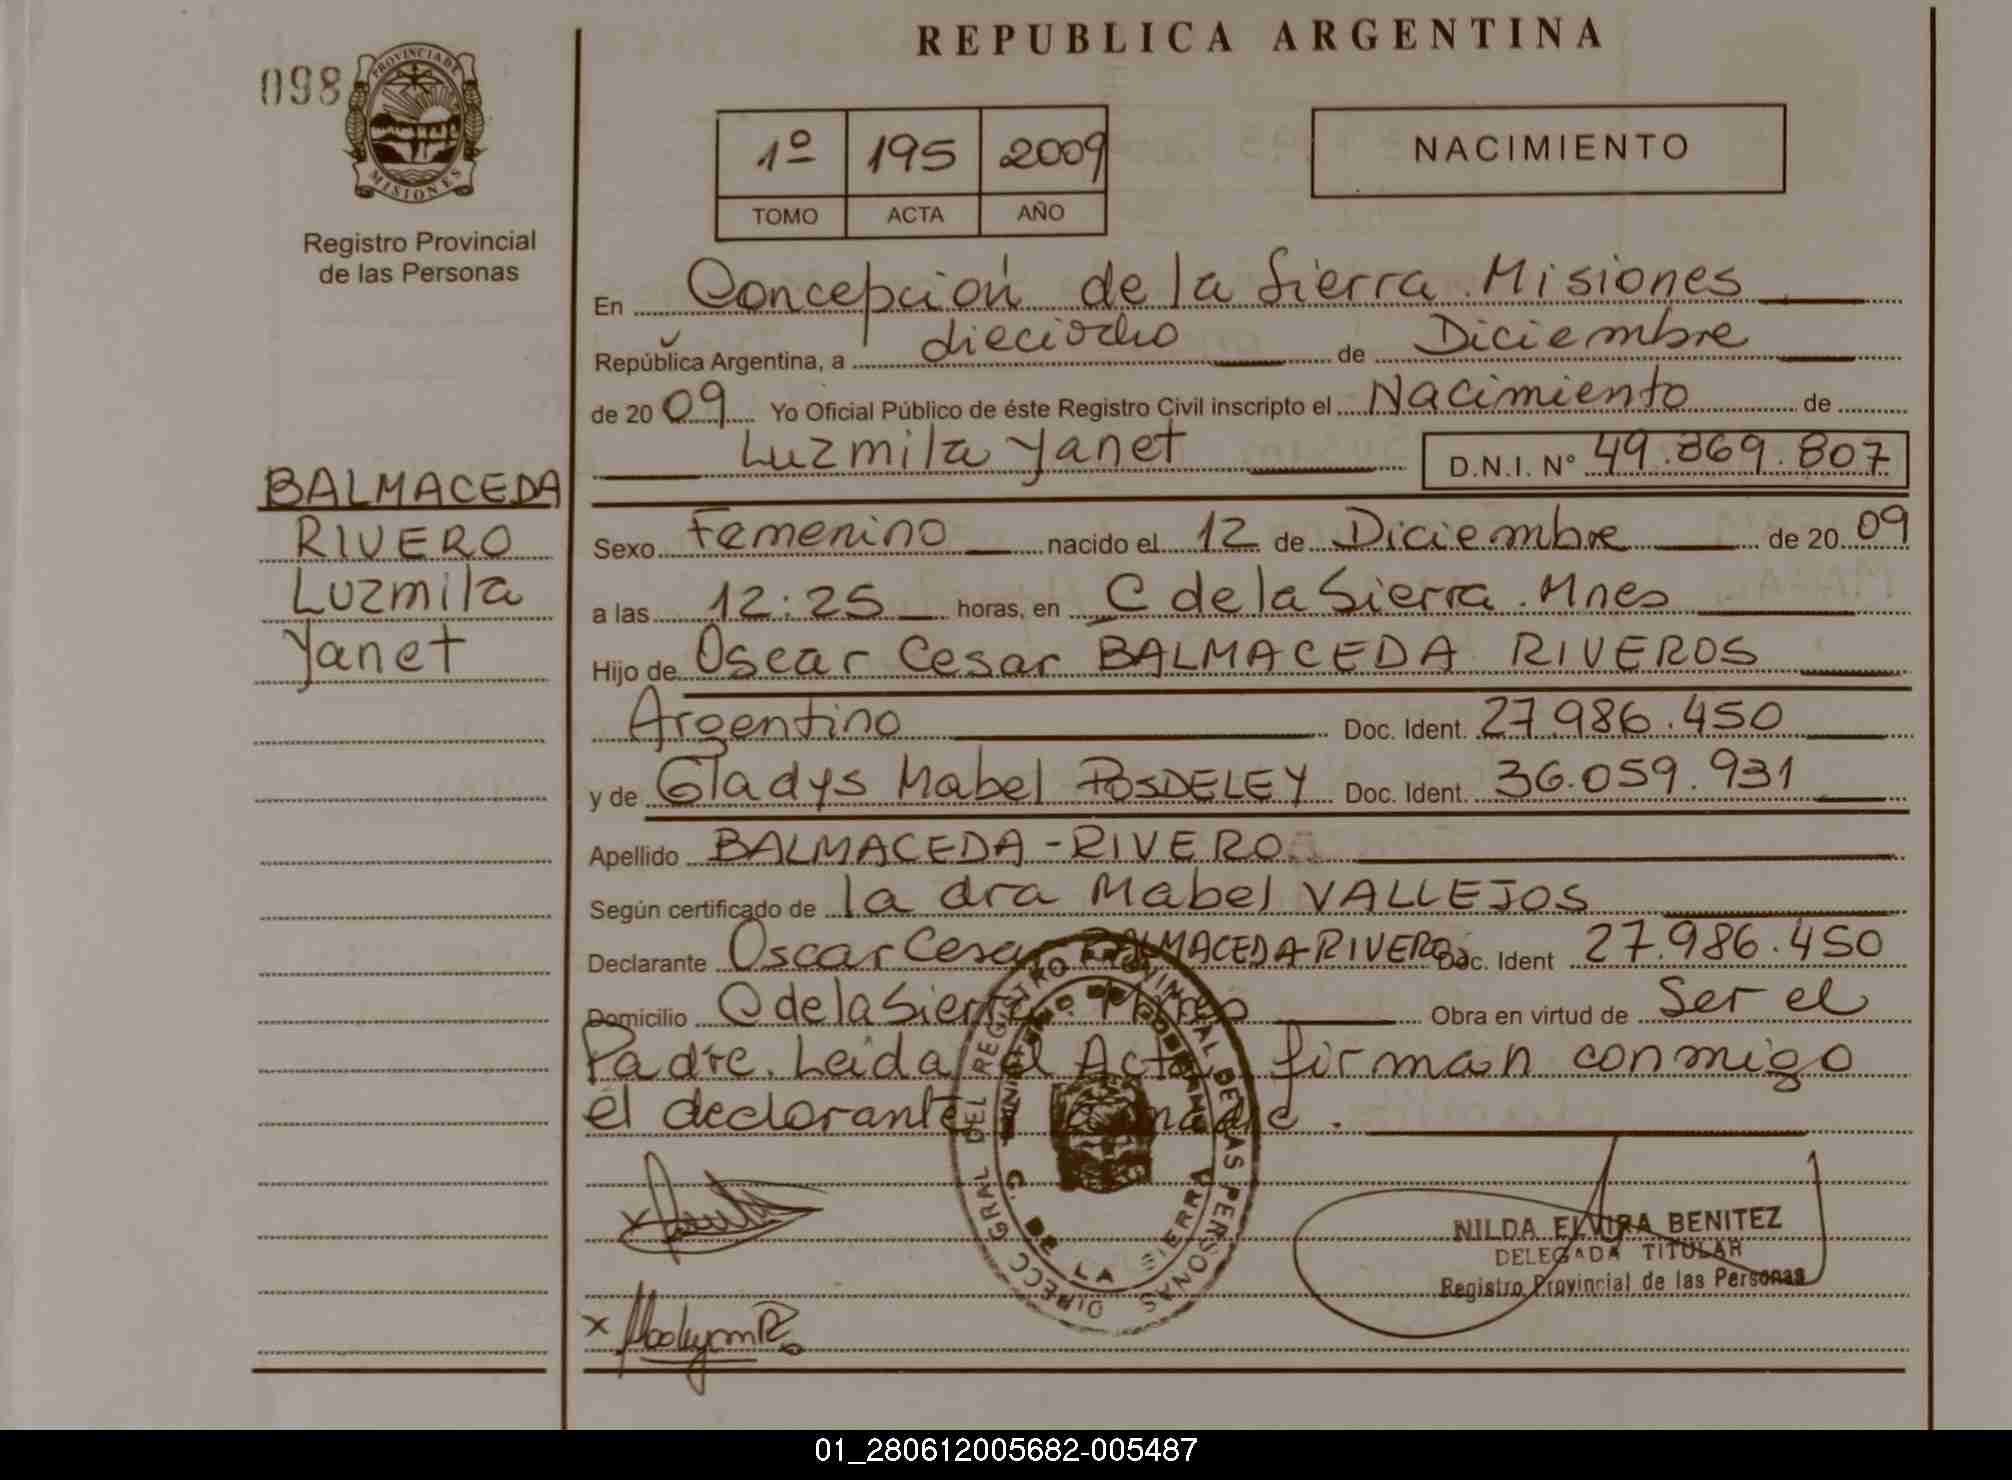 REPUBLICA ARGENTINA
098
PROVINCIA DE MISIONES
Registro Provincial
de las Personas
1º 195 2009
TOMO ACTA AÑO
NACIMIENTO
En Concepción de la Sierra. Misiones
República Argentina, a dieciocho de Diciembre
de 2009 Yo Oficial Público de éste Registro Civil inscripto el Nacimiento de
Luzmila Yanet D.N.I. Nº 49.869.807
BALMACEDA
RIVERO
Luzmila
Yanet
Sexo Femenino nacido el 12 de Diciembre de 2009
a las 12:25 horas, en C de la Sierra. Mnes
Hijo de Oscar Cesar BALMACEDA RIVEROS
Argentino Doc. Ident. 27.986.450
y de Gladys Mabel POSDELEY Doc. Ident. 36.059.931
Apellido BALMACEDA-RIVERO
Según certificado de la dra Mabel VALLEJOS
Declarante Oscar Cesar BALMACEDA-RIVERO Doc. Ident 27.986.450
Domicilio C de la Sierra Mnes Obra en virtud de Ser el
Padre. Leida el Acta, firman conmigo
el declarante la madre.
DIRECC GRAL DEL REGISTRO PROVINCIAL DE LAS PERSONAS
C. DE LA SIERRA
NILDA ELVIRA BENITEZ
DELEGADA TITULAR
Registro Provincial de las Personas
01_280612005682-005487